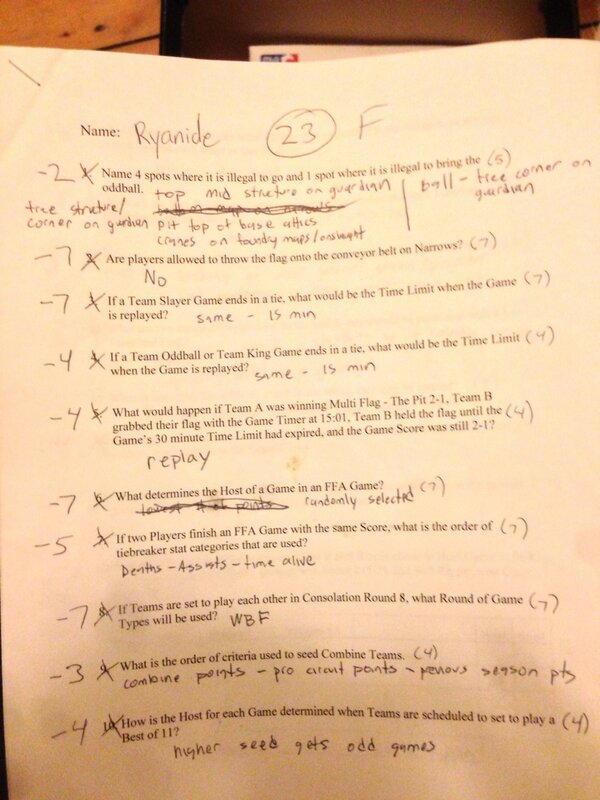 Name: Ryanide 23 F
-2 1. Name 4 spots where it is illegal to go and 1 spot where it is illegal to bring the (5)
oddball. top mid structure on guardian ball - tree corner on
guardian
tree structure/
corner on guardian pit top of base attics
cranes on foundry maps/onslaught
-7 2. Are players allowed to throw the flag onto the conveyor belt on Narrows? (7)
No
-7 3. If a Team Slayer Game ends in a tie, what would be the Time Limit when the Game (7)
is replayed? same - 15 min
-4 4. If a Team Oddball or Team King Game ends in a tie, what would be the Time Limit (4)
when the Game is replayed? same - 15 min
-4 5. What would happen if Team A was winning Multi Flag - The Pit 2-1, Team B
grabbed their flag with the Game Timer at 15:01, Team B held the flag until the (4)
Game's 30 minute Time Limit had expired, and the Game Score was still 2-1?
replay
-7 6. What determines the Host of a Game in an FFA Game? (7)
lowest # of points randomly selected
-5 7. If two Players finish an FFA Game with the same Score, what is the order of (7)
tiebreaker stat categories that are used?
Deaths - Assists - time alive
-7 8. If Teams are set to play each other in Consolation Round 8, what Round of Game (7)
Types will be used? WBF
-3 9. What is the order of criteria used to seed Combine Teams. (4)
combine points - pro circuit points - pervious season pts
-4 10. How is the Host for each Game determined when Teams are scheduled to set to play a (4)
Best of 11?
higher seed gets odd games